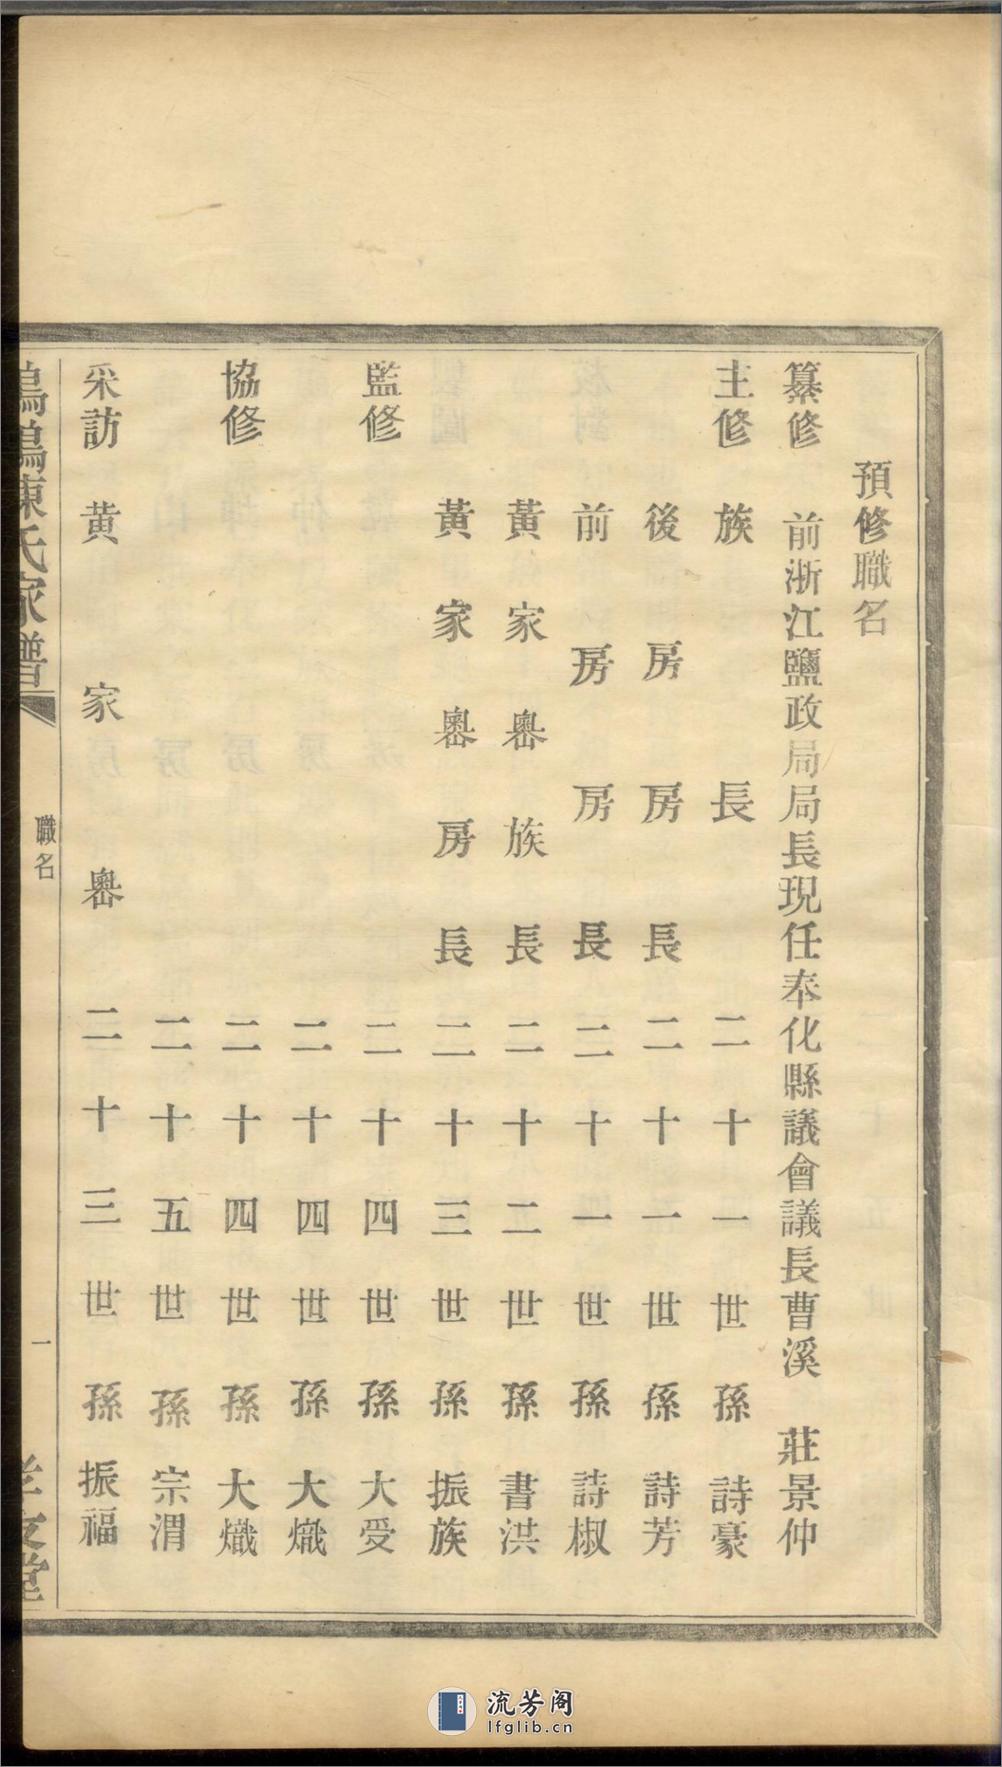 預修職名
纂修 前浙江鹽政局局長現任奉化縣議會議長曹溪 莊景仲
主修 族長 二十一世孫 詩豪
後房房長 二十一世孫 詩芳
前房房長 二十一世孫 詩椒
黃家嶴族長 二十二世孫 書洪
黃家嶴房長 二十三世孫 振族
監修 二十四世孫 大受
二十四世孫 大熾
協修 二十四世孫 大熾
二十五世孫 宗渭
采訪 黃家嶴 二十三世孫 振福
陳氏家譜
職名
一
堂
流芳阁
lfglib.cn